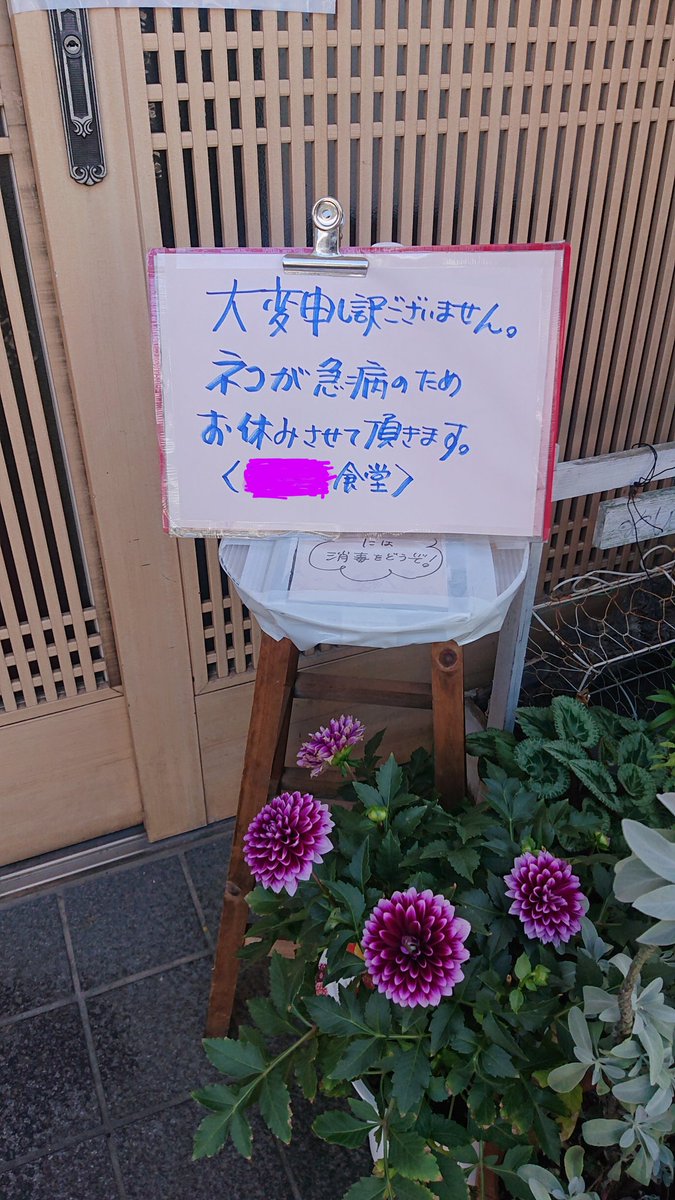 大変申し訳ございません。
ネコが急病のため
お休みさせて頂きます。
〈食堂〉
には
消毒をどうぞ!